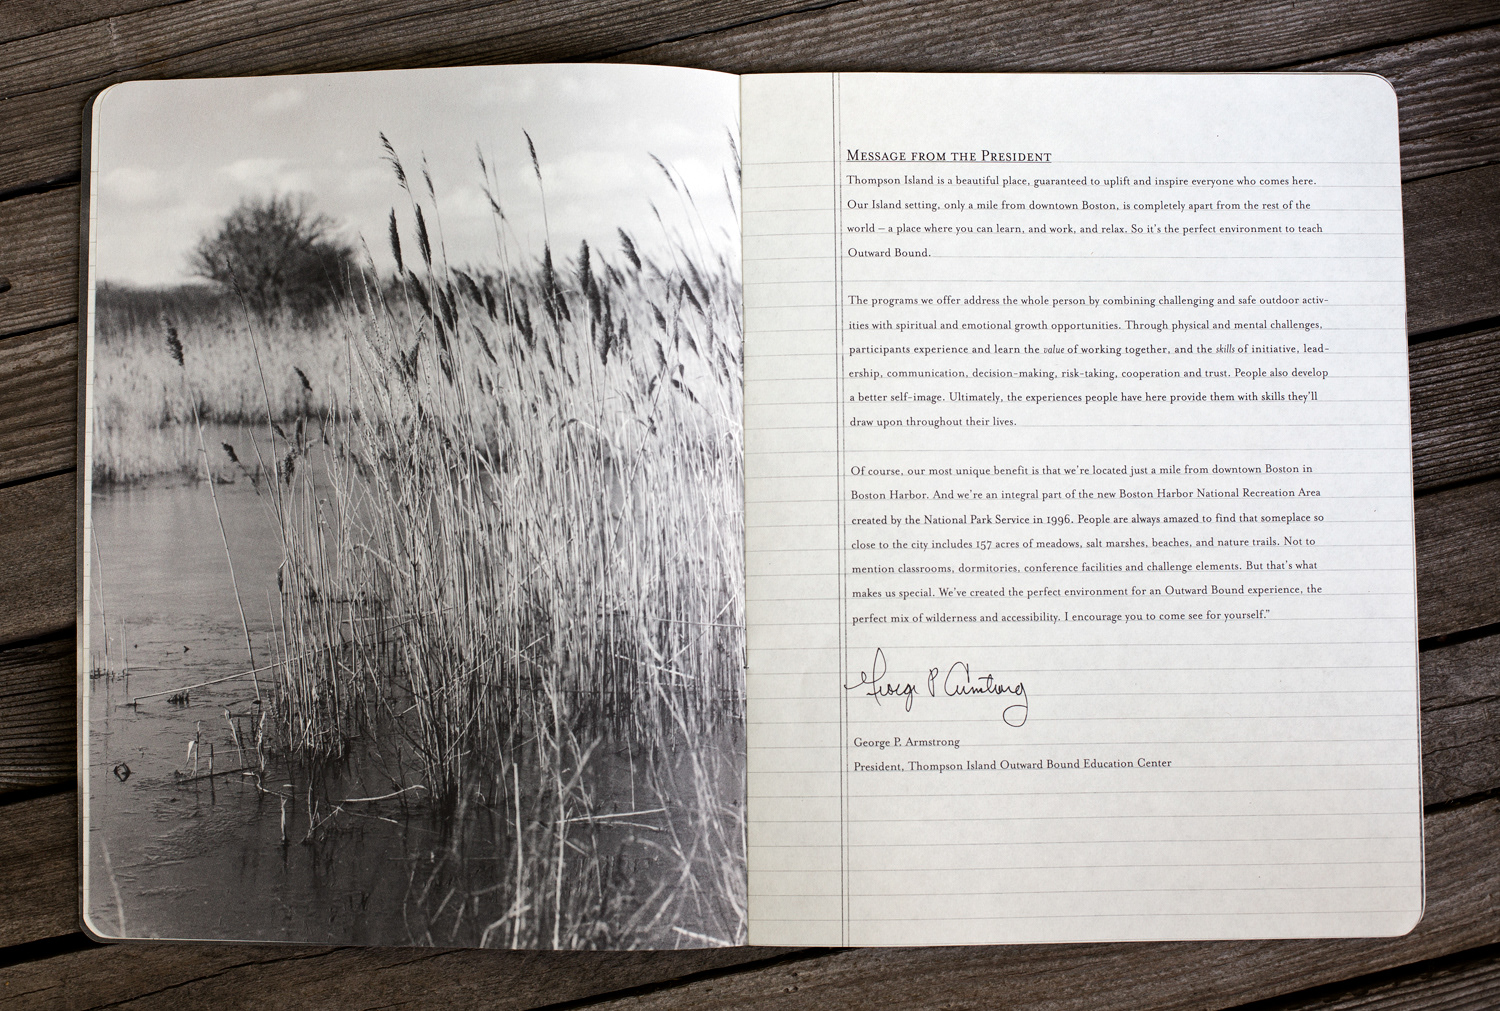 Message from the President
Thompson Island is a beautiful place, guaranteed to uplift and inspire everyone who comes here.
Our Island setting, only a mile from downtown Boston, is completely apart from the rest of the
world – a place where you can learn, and work, and relax. So it's the perfect environment to teach
Outward Bound.
The programs we offer address the whole person by combining challenging and safe outdoor activ-
ities with spiritual and emotional growth opportunities. Through physical and mental challenges,
participants experience and learn the value of working together, and the skills of initiative, lead-
ership, communication, decision-making, risk-taking, cooperation and trust. People also develop
a better self-image. Ultimately, the experiences people have here provide them with skills they'll
draw upon throughout their lives.
Of course, our most unique benefit is that we're located just a mile from downtown Boston in
Boston Harbor. And we're an integral part of the new Boston Harbor National Recreation Area
created by the National Park Service in 1996. People are always amazed to find that someplace so
close to the city includes 157 acres of meadows, salt marshes, beaches, and nature trails. Not to
mention classrooms, dormitories, conference facilities and challenge elements. But that's what
makes us special. We've created the perfect environment for an Outward Bound experience, the
perfect mix of wilderness and accessibility. I encourage you to come see for yourself."
George P Armstrong
George P. Armstrong
President, Thompson Island Outward Bound Education Center